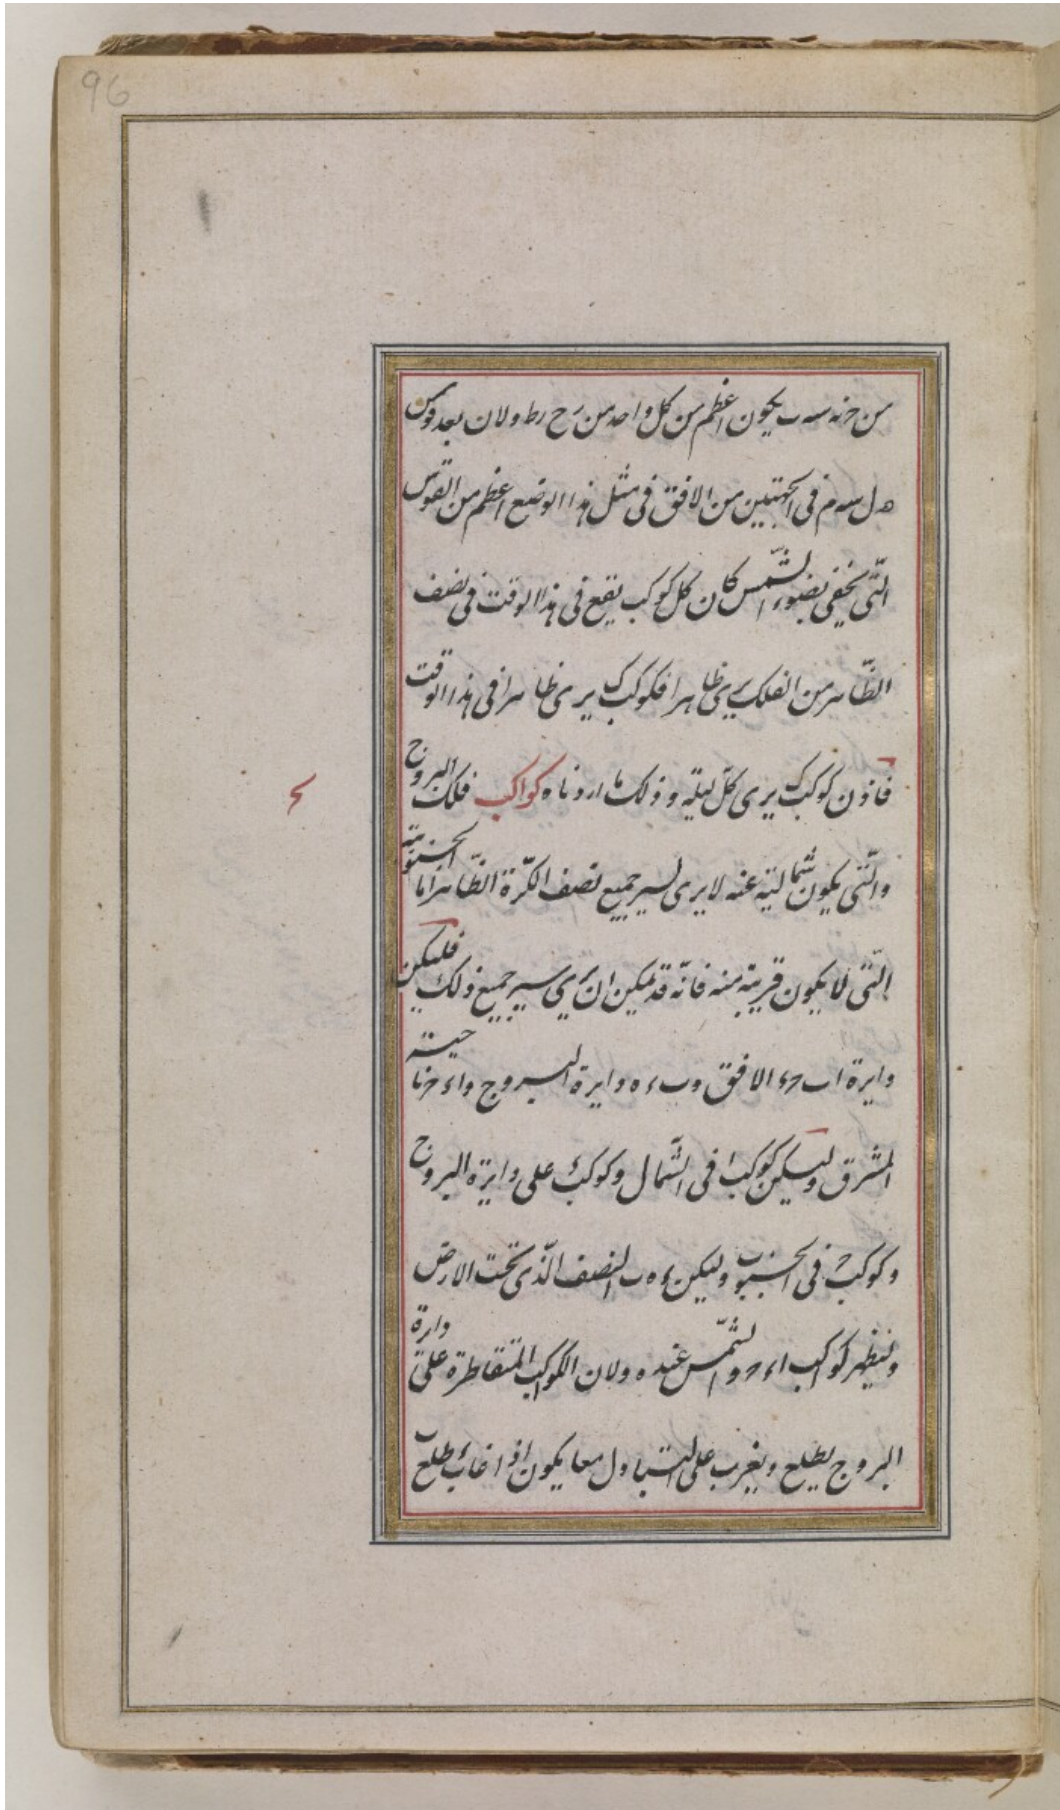 96
من حه نه سه ب يكون اعظم من كل واحد من رح رط ولان بعد قوس
هل سه م فى الجهتين من الافق فى مثل هذا الوضع اعظم من القوس
التّى تخفى بضوء الشّمس كان كل كوكب يقع فى هذا الوقت فى نصف
الظّاهر من الفلك يرى ظاهرا فكوكب ك يرى ظاهرا فى هذا الوقت
فاذن كوكب ك يرى كلّ ليلة وذلك ما اردناه كواكب فلك البروج
ح
والتّى يكون شمالية عنه لا يرى تسير جميع نصف الكرّة الظّاهر اما الجنوبية
التّى لا يكون قريبة منه فانّه قد يمكن ان يرى تسير جميع ذلك فليكن
دايرة ا ب ح ء الافق و ب ء ه دايرة البروج و ا ء حزنا حيته
المشرق وليكن كوكب ا فى الشّمال وكوكب ء على دايرة البروج
وكوكب ح فى الجنوب وليكن ء ه ب النصف الّذى تحت الارض
وليظهر كواكب ا ء ح والشّمس عند ه ولان الكواكب المتقاطرة على دايرة
البروج يطلع ويغرب على التبادل معا يكون اذا غاب ء طلع ب